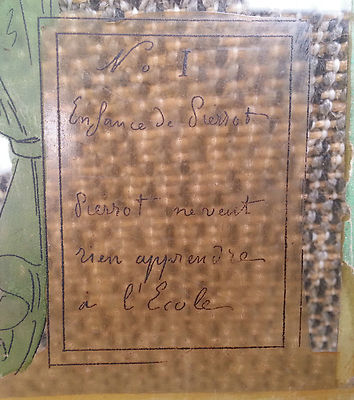 No I
Enfance de Pierrot
Pierrot ne veut
rien apprendre
à l'Ecole